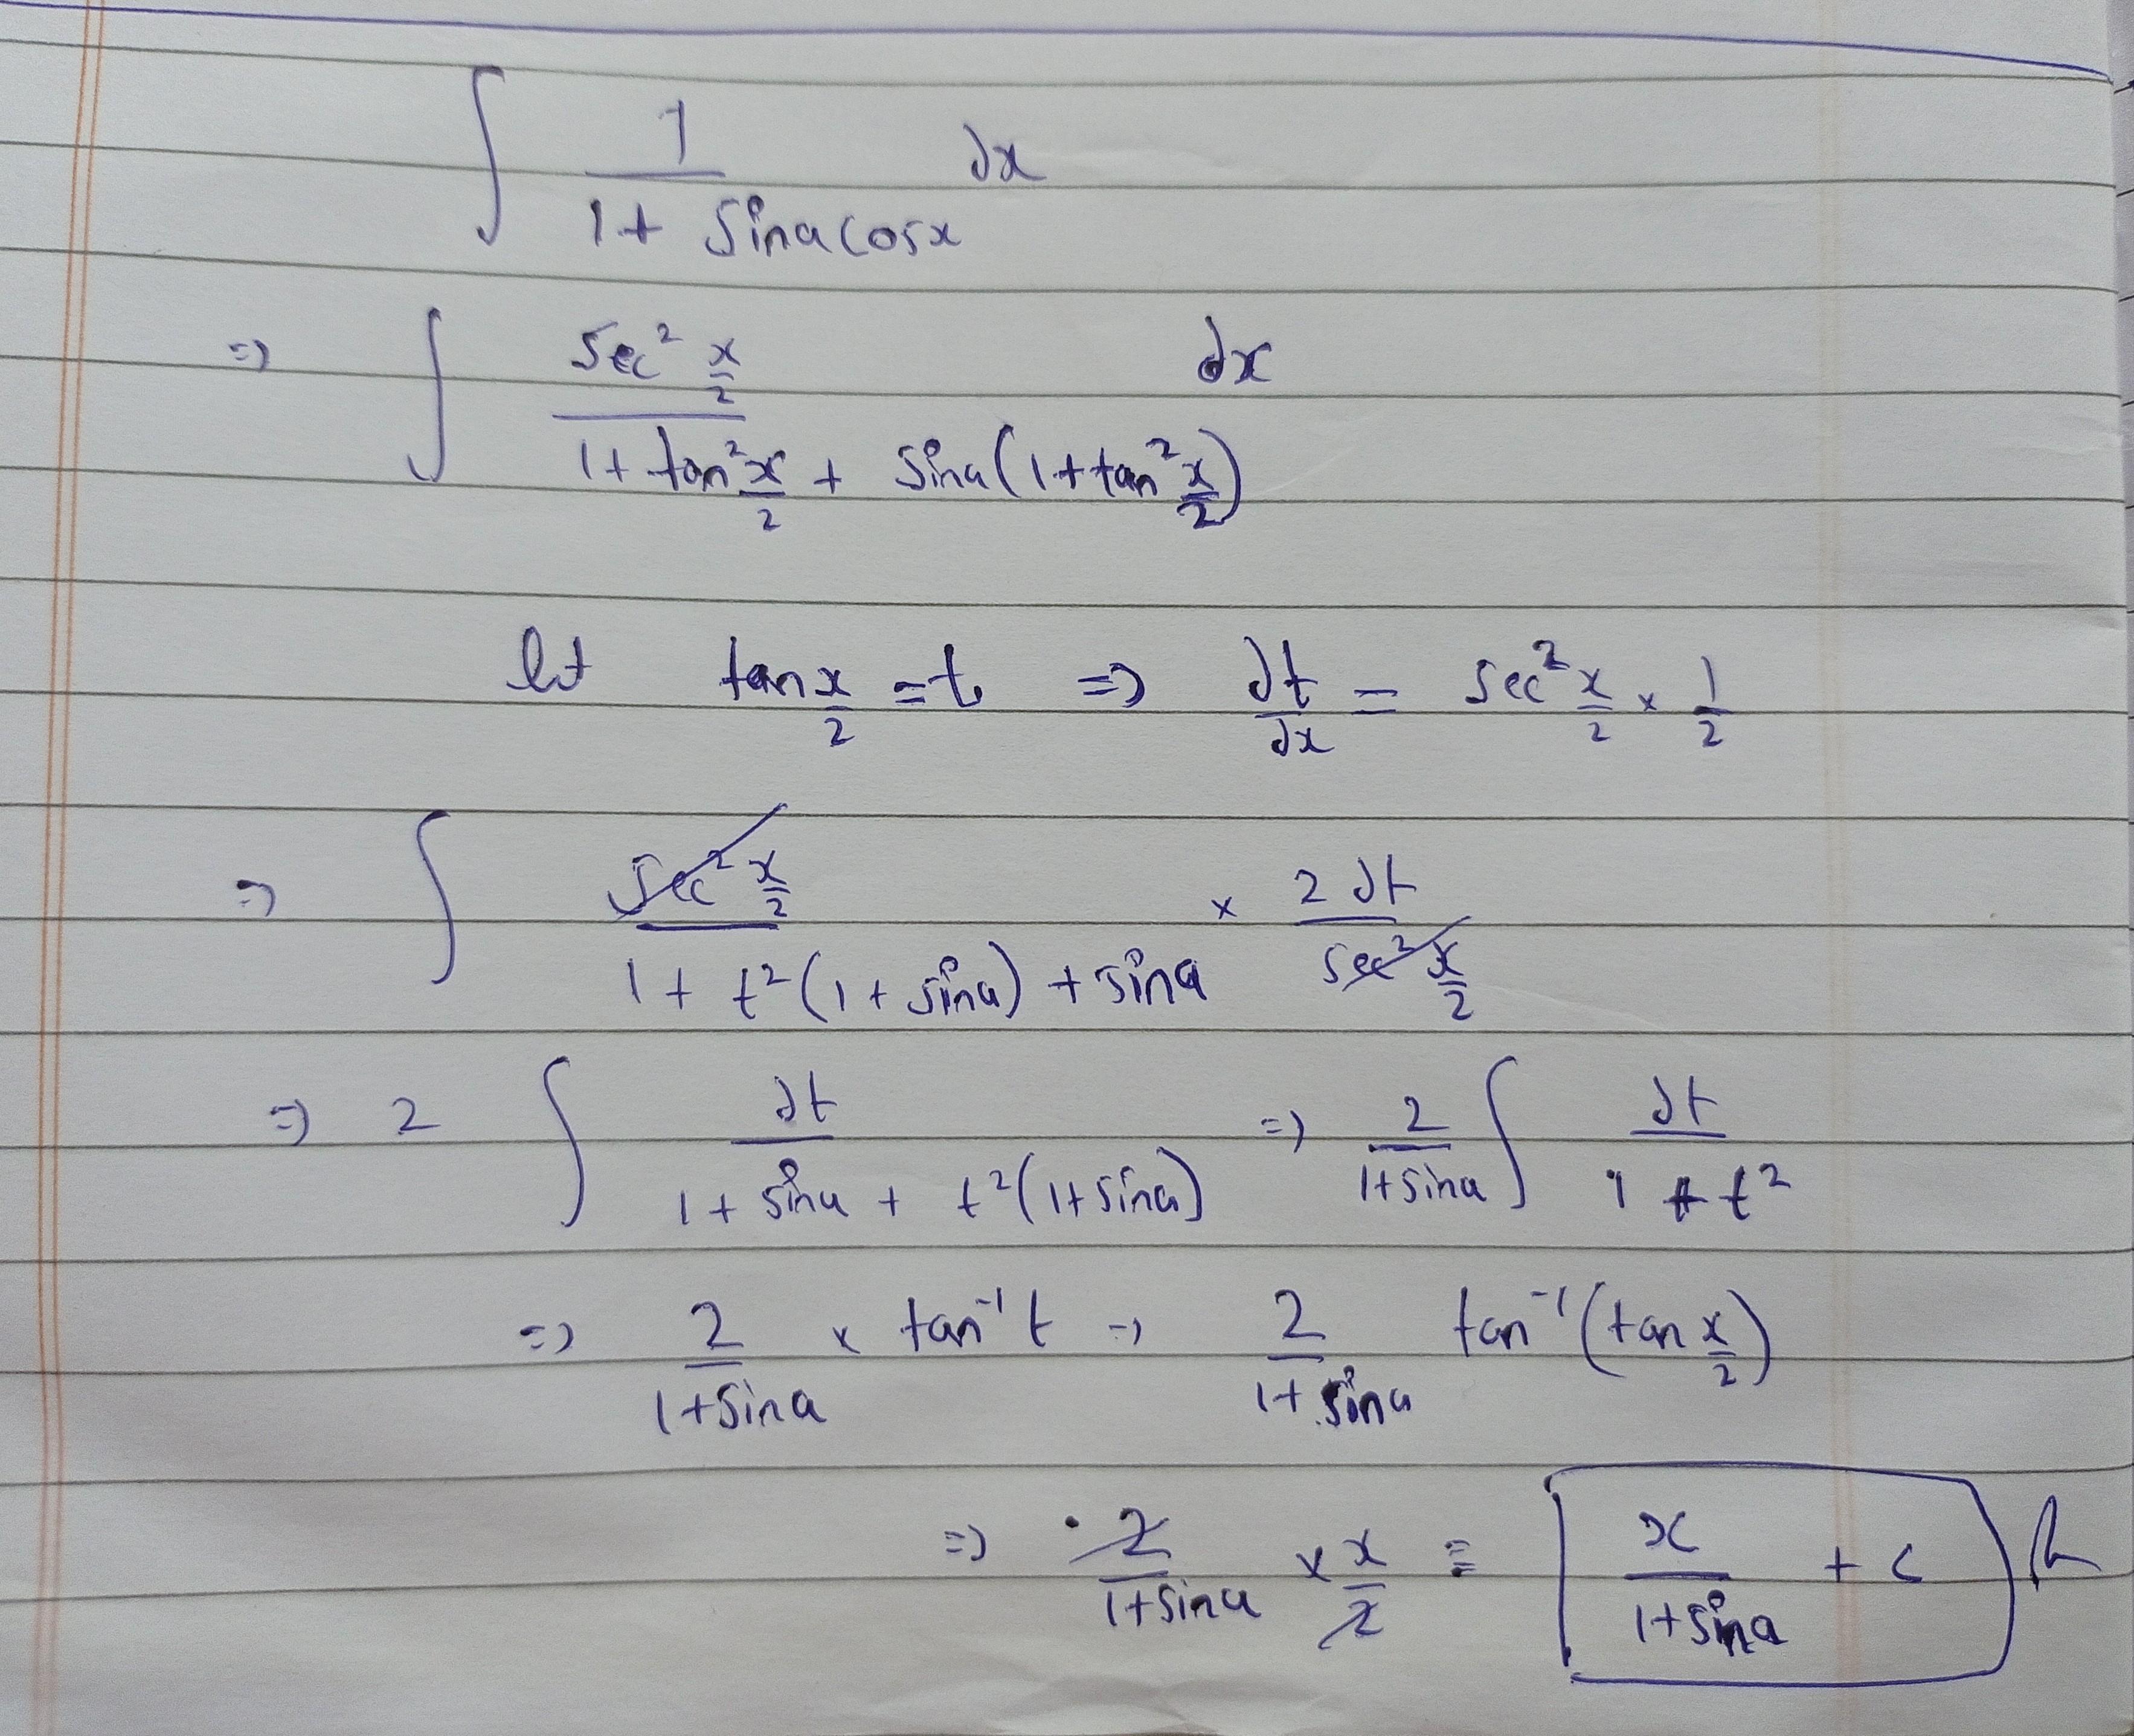 ∫ 1/(1 + sina cosx) dx
⇒ ∫ sec² x/2 / (1 + tan² x/2 + sina(1 + tan² x/2)) dx
let tan x/2 = t ⇒ dt/dx = sec² x/2 × 1/2
⇒ ∫ sec² x/2 / (1 + t²(1 + sina) + sina) × 2dt / sec² x/2
⇒ 2 ∫ dt / (1 + sina + t²(1 + sina)) ⇒ 2/(1 + sina) ∫ dt / (1 + t²)
⇒ 2/(1 + sina) × tan⁻¹ t ⇒ 2/(1 + sina) tan⁻¹(tan x/2)
⇒ 2/(1 + sina) × x/2 = x/(1 + sina) + c